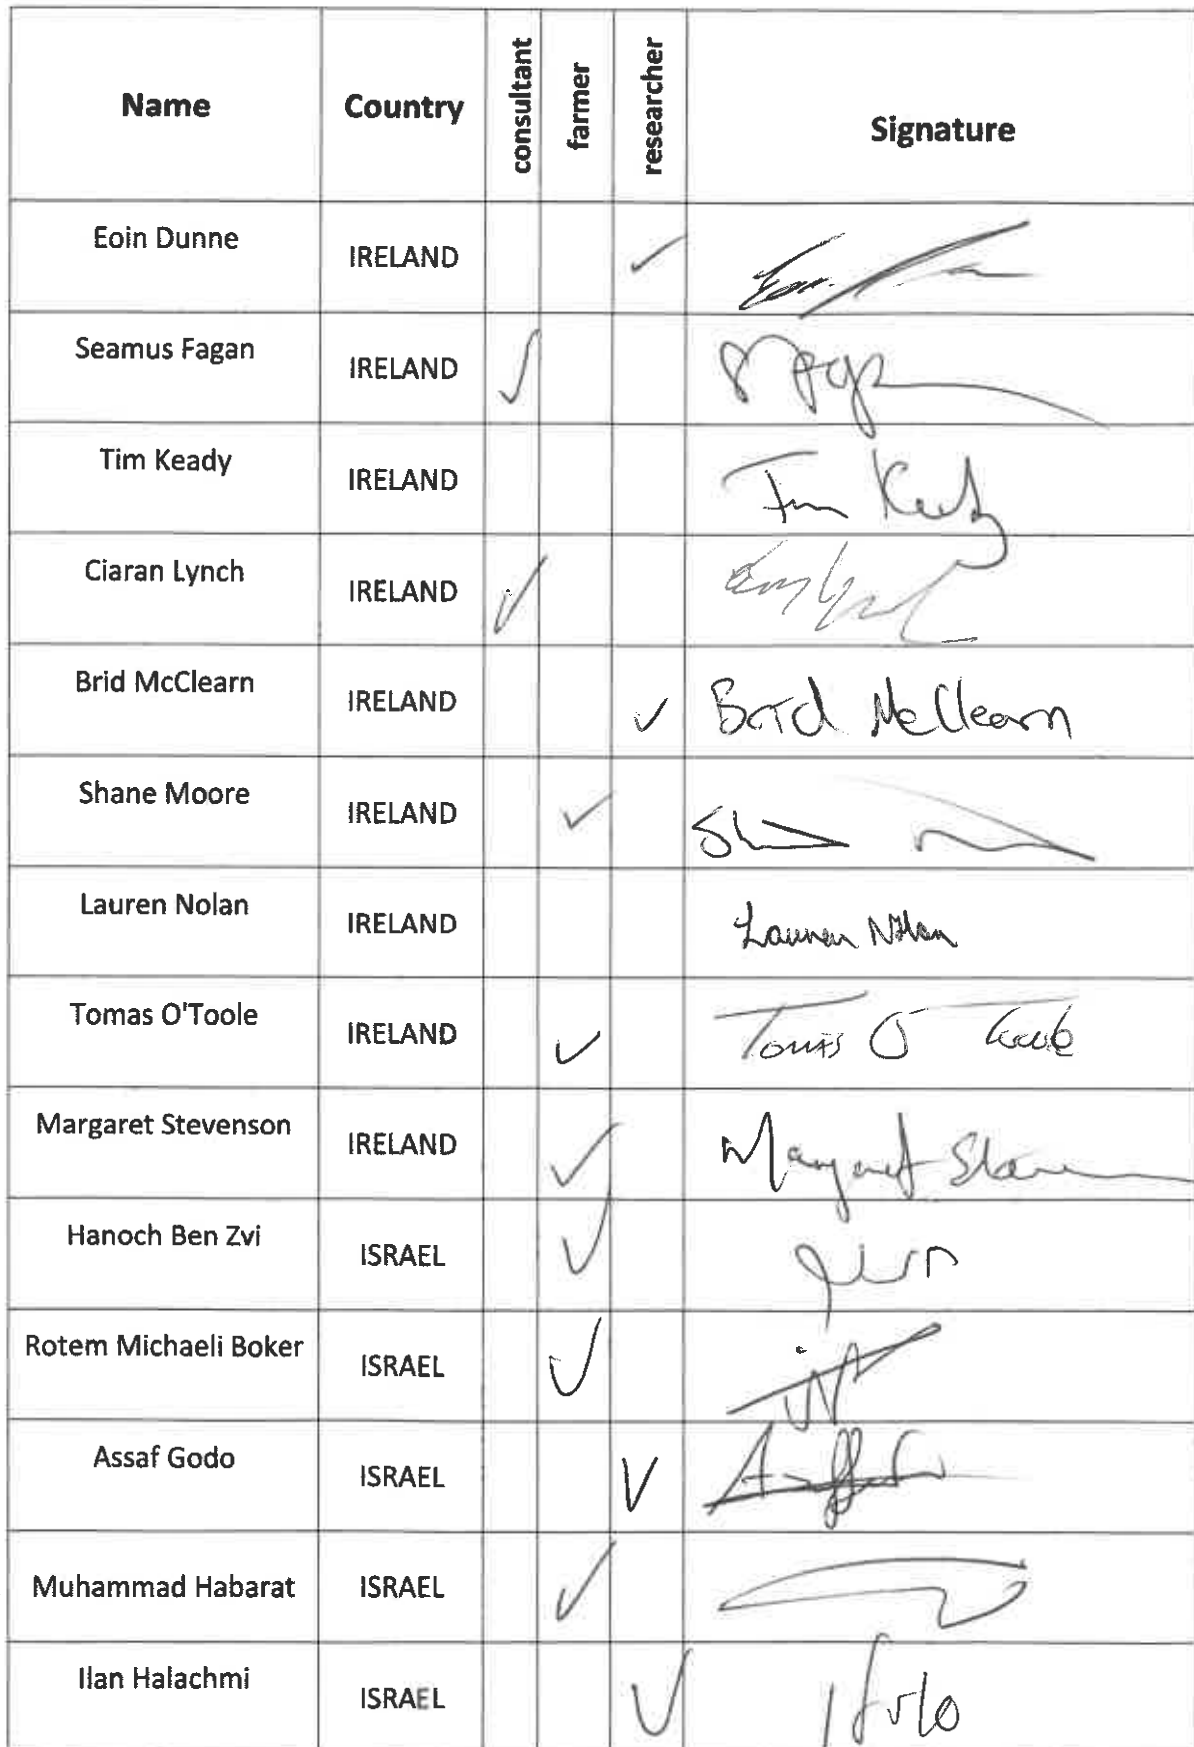 Name Country consultant farmer researcher Signature
Eoin Dunne IRELAND ✓
Seamus Fagan IRELAND ✓
Tim Keady IRELAND Tim Keady
Ciaran Lynch IRELAND ✓
Brid McClearn IRELAND ✓ Bríd McClearn
Shane Moore IRELAND ✓
Lauren Nolan IRELAND Lauren Nolan
Tomas O'Toole IRELAND ✓ Tomás O Toole
Margaret Stevenson IRELAND ✓ Margaret
Hanoch Ben Zvi ISRAEL ✓
Rotem Michaeli Boker ISRAEL ✓
Assaf Godo ISRAEL ✓
Muhammad Habarat ISRAEL ✓
Ilan Halachmi ISRAEL ✓